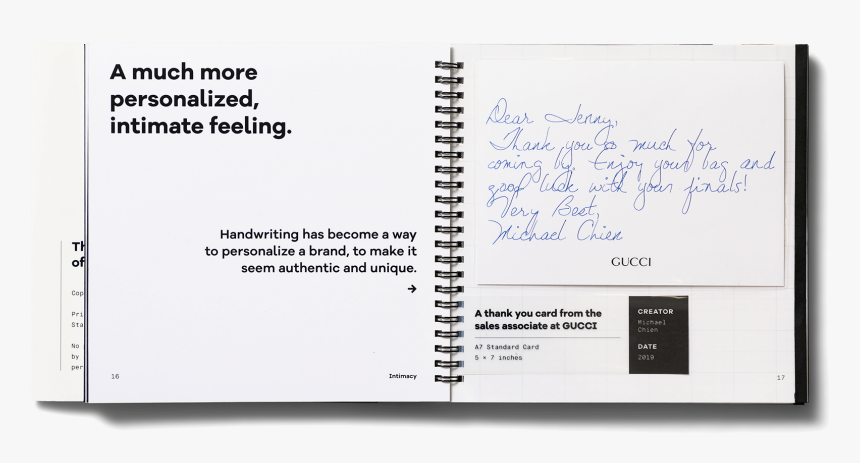 Th
of
Cop
Pri
Sta
No
by
per
A much more
personalized,
intimate feeling.
Handwriting has become a way
to personalize a brand, to make it
seem authentic and unique.
→
16
Intimacy
Dear Jenny,
Thank you so much for
coming by. Enjoy your bag and
good luck with your finals!
Very Best,
Michael Chien
GUCCI
A thank you card from the
sales associate at GUCCI
A7 Standard Card
5 × 7 inches
CREATOR
Michael
Chien
DATE
2019
17